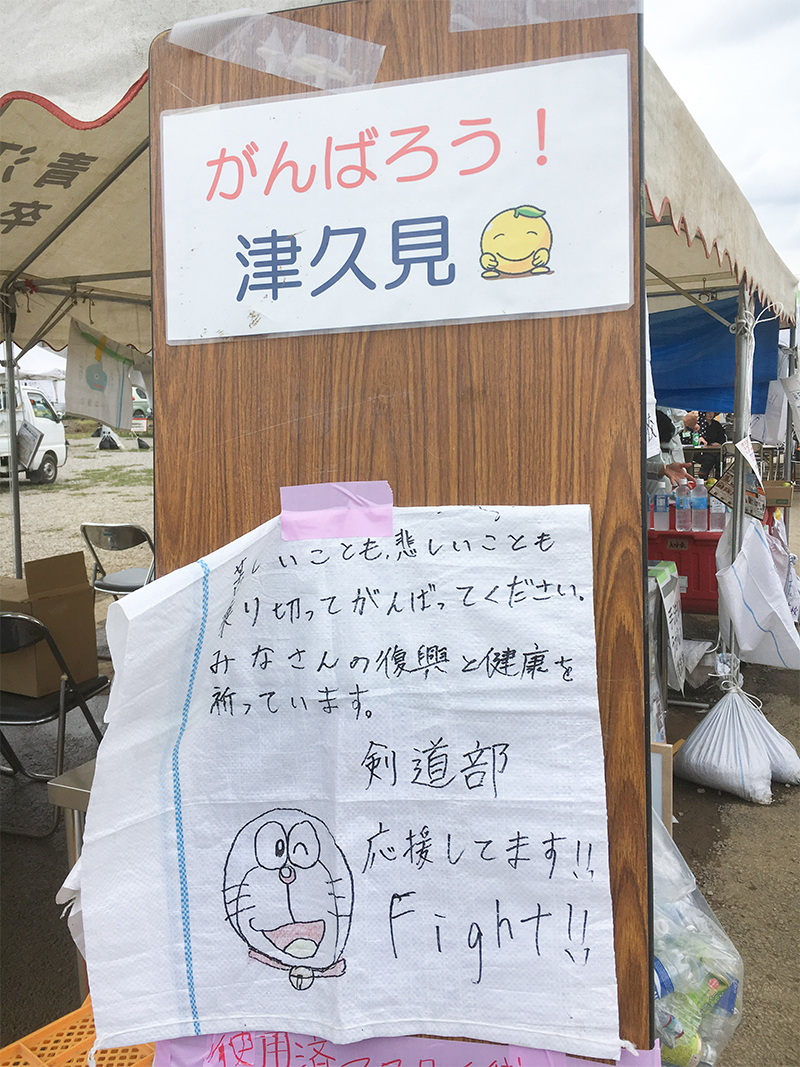 がんばろう！
津久見
苦しいことも、悲しいことも
乗り切ってがんばってください。
みなさんの復興と健康を
祈っています。
剣道部
応援してます!!
Fight!!
使用済